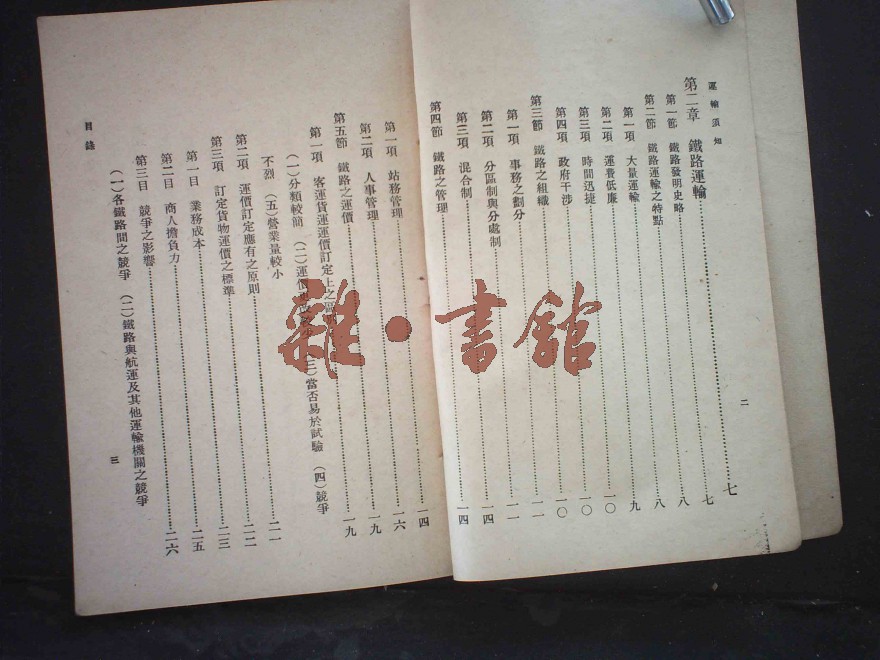 運輸須知
第二章 鐵路運輸……七
第一節 鐵路發明史略……七
第二節 鐵路運輸之特點……八
第一項 大量運輸……八
第二項 運費低廉……九
第三項 時間迅捷……一〇
第四項 政府干涉……一〇
第三節 鐵路之組織……一〇
第一項 事務之劃分……一一
第二項 分區制與分處制……一一
第三項 混合制……一四
第四節 鐵路之管理……一四
二
第一項 站務管理……一四
第二項 人事管理……一六
第五節 鐵路之運價……一九
第一項 客運貨運運價訂定上之區……一九
(一)分類較簡 (二)運價 (三)當否易於試驗 (四)競爭
不烈 (五)營業量較小
第二項 運價訂定應有之原則……二一
第三項 訂定貨物運價之標準……二二
第一目 業務成本……二三
第二目 商人擔負力……二五
第三目 競爭之影響……二六
(一)各鐵路間之競爭 (二)鐵路與航運及其他運輸機關之競爭
目錄
三
雜·書館